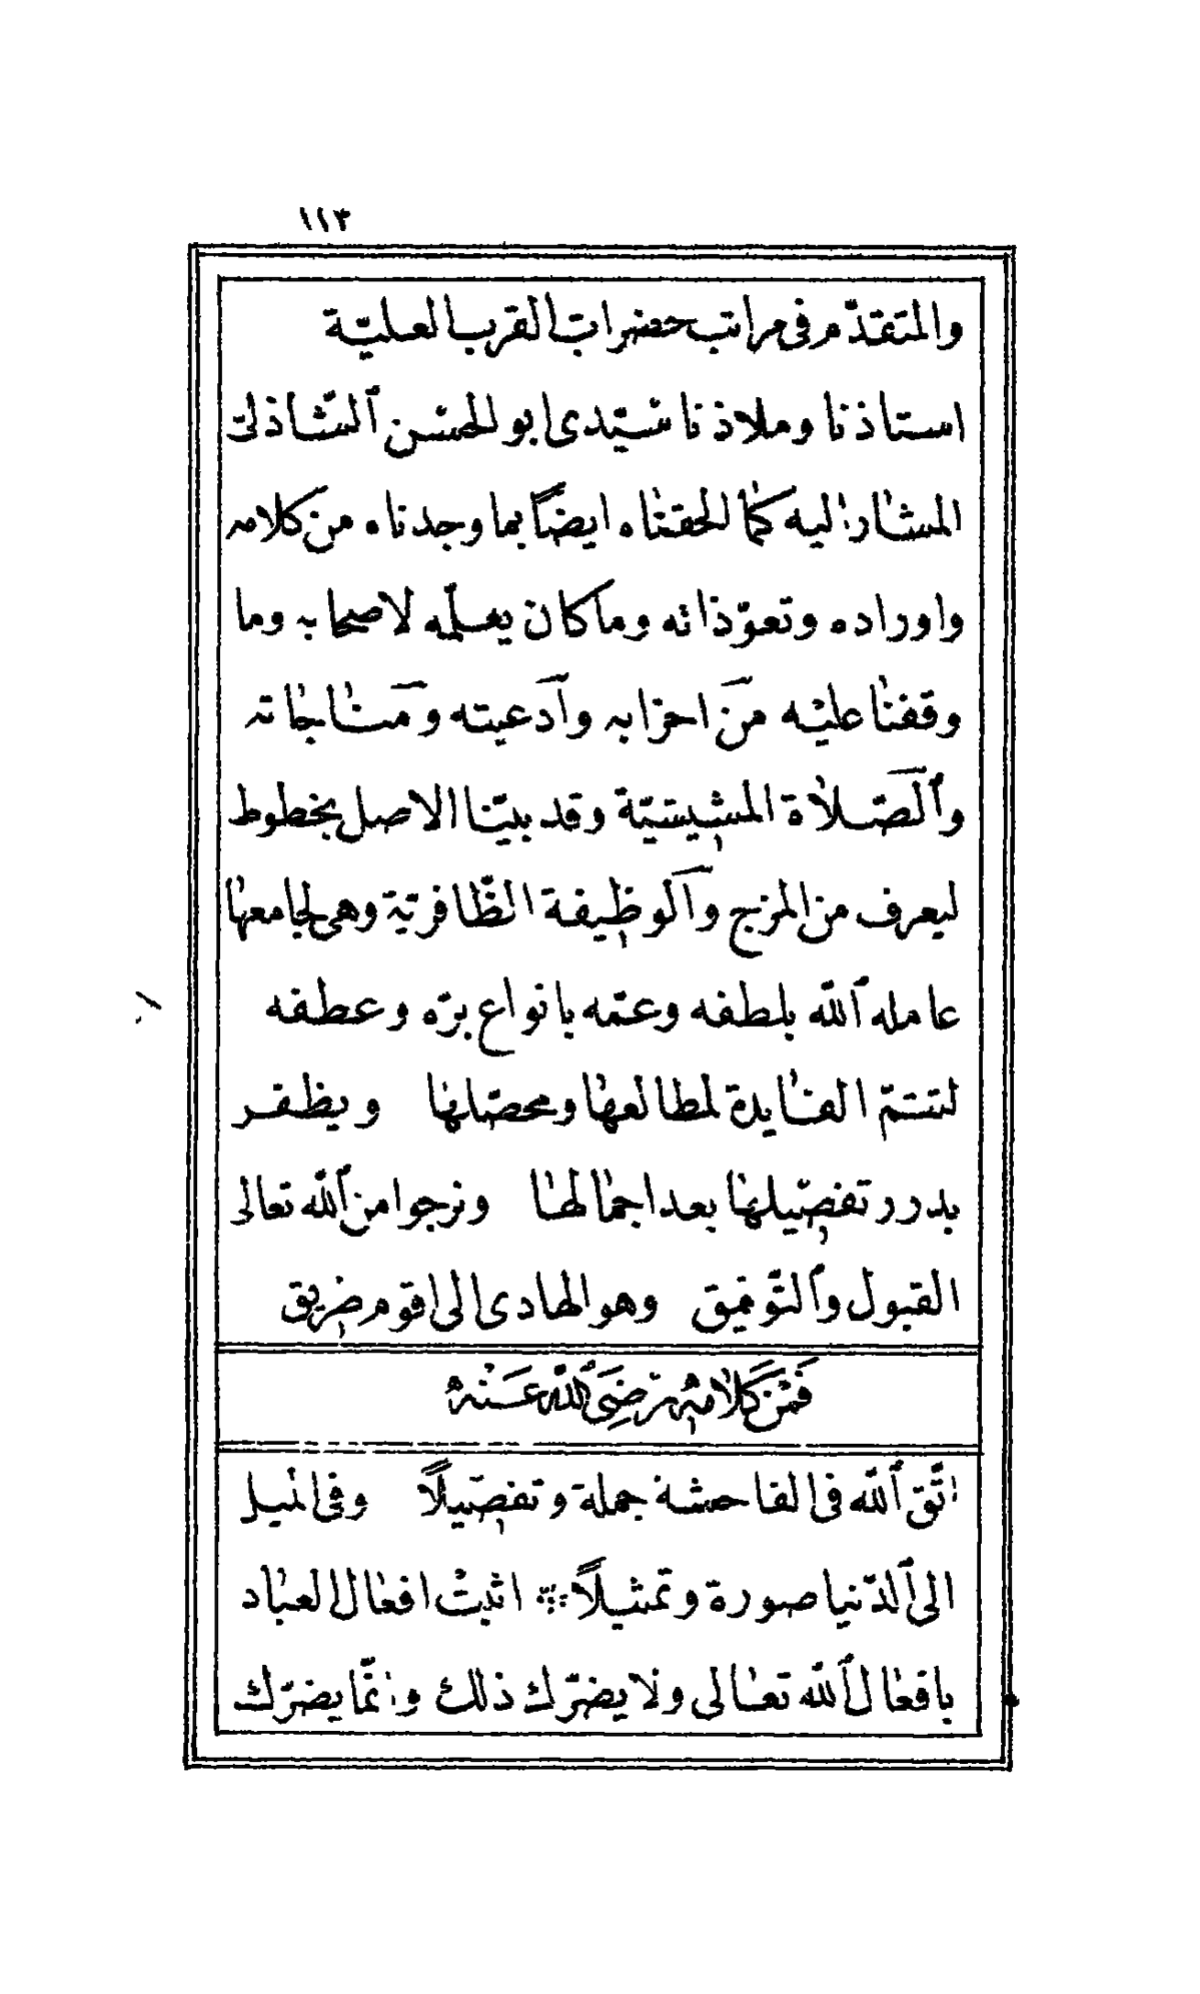 ١١٣
والمتقدّم فى مراتب حضرات القرب العليّة
استاذنا وملاذنا سيّدى ابو الحسن الشّاذلىّ
المشار اليه كما الحقناه ايضًا بما وجدناه من كلامه
واوراده وتعوّذاته وما كان يعلّمه لاصحابه وما
وقفنا عليه من احزابه وأدعيته ومناجاته
والصّلاة المشيشيّة وقد بيّنا الاصل بخطوط
ليعرف من المزج والوظيفة الظّافريّة وهى لجامعها
عامله الله بلطفه وعمّه بانواع برّه وعطفه
لتتمّ الفايدة لمطالعها ومحصّلها ويظفر
بدرر تفصيلها بعد اجمالها ونرجوا من الله تعالى
القبول والتّوفيق وهو الهادى الى اقوم طريق
فَمِنْ كَلَامِهِ رَضِىَ اللّٰه عَنْهُ
اتّق الله فى الفاحشة جملة وتفصيلًا وفى الميل
الى الدّنيا صورة وتمثيلًا اثبتْ افعال العباد
بافعال الله تعالى ولا يضرّك ذلك وانّما يضرّك